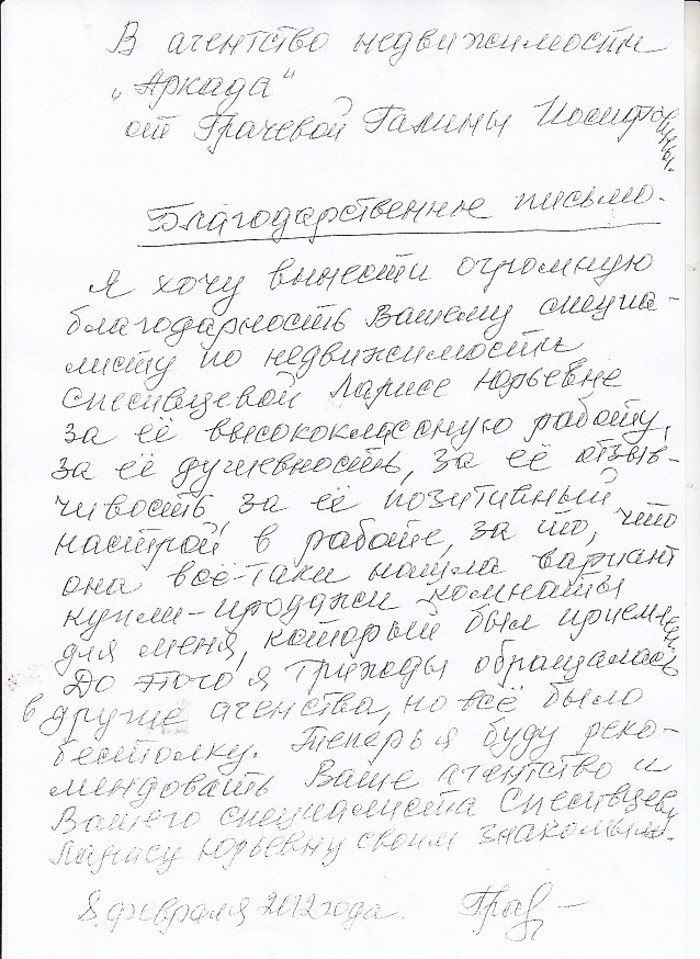 В агентство недвижимости
„Аркада“
от Грачевой Галины Иосифовны.
Благодарственное письмо.
Я хочу вынести огромную
благодарность Вашему специа-
листу по недвижимости
Спесивцевой Ларисе Юрьевне
за её высококлассную работу,
за её душевность, за её отзыв-
чивость, за её позитивный
настрой в работе, за то, что
она всё-таки нашла вариант
купли-продажи комнаты
для меня, который был приемлем.
До этого я трижды обращалась
в другие агенства, но всё было
бестолку. Теперь я буду реко-
мендовать Ваше агентство и
Вашего специалиста Спесивцеву
Ларису Юрьевну своим знакомым.
8 февраля 2012 года.